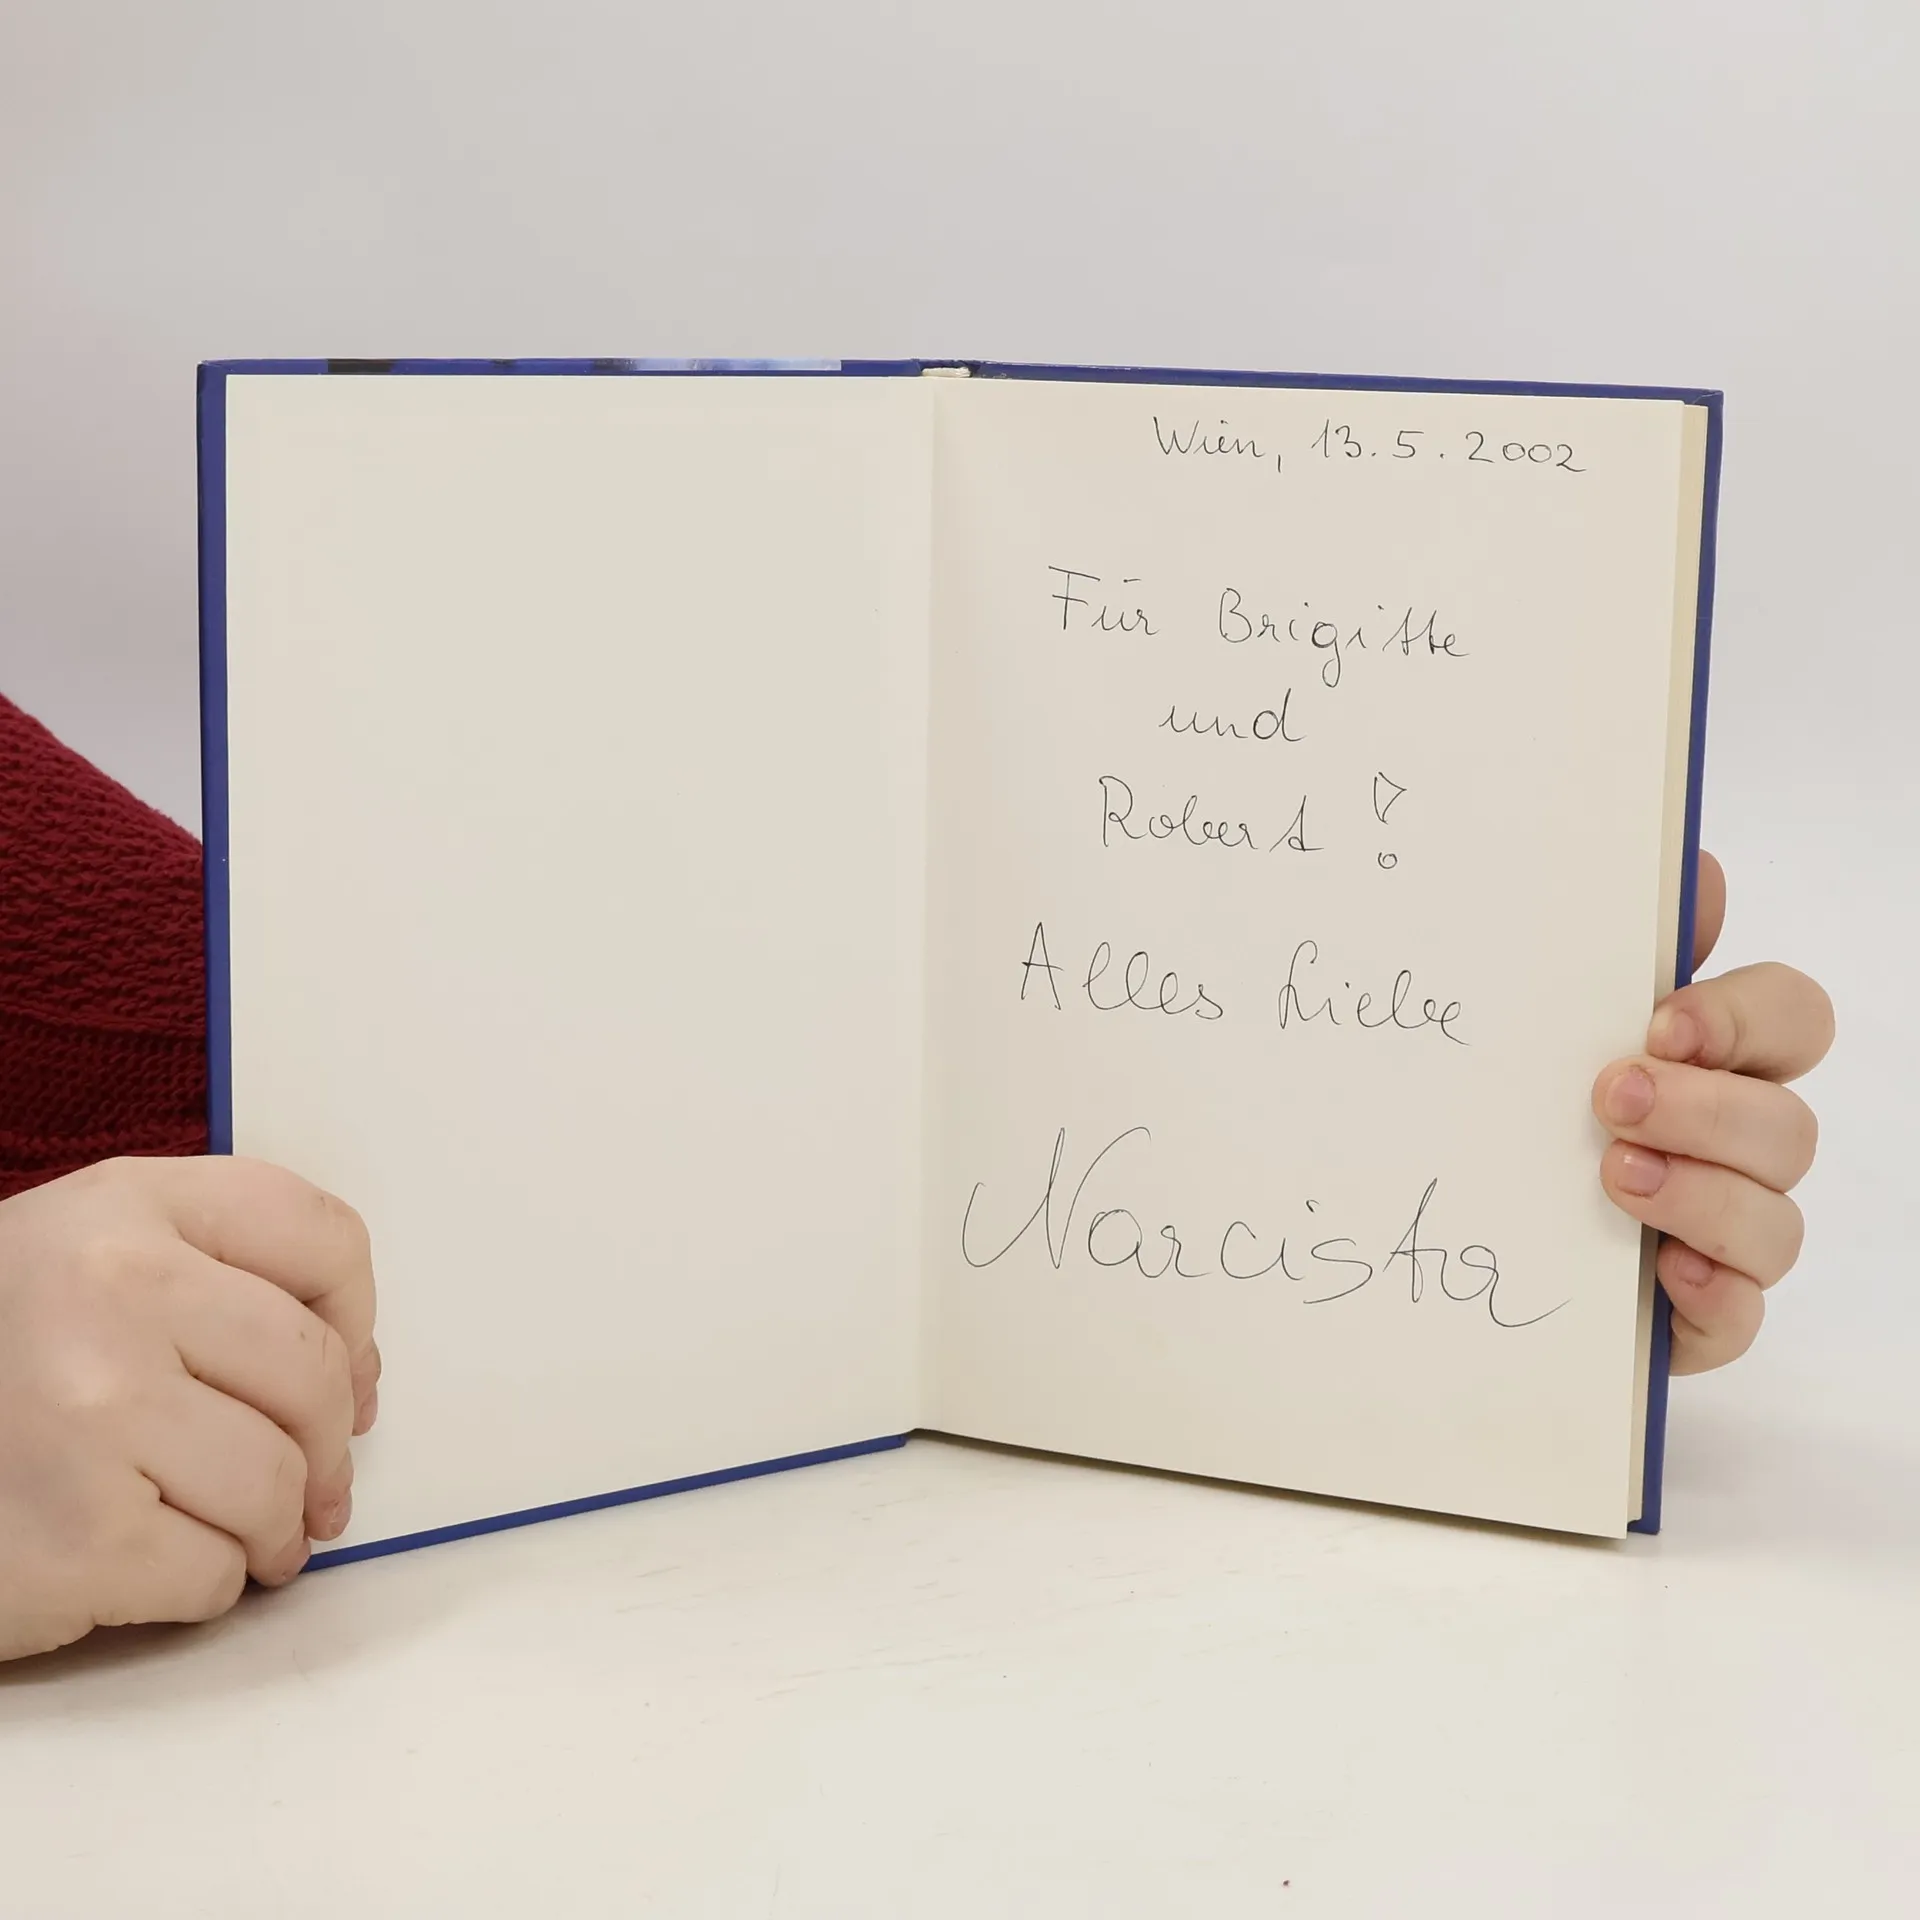 Wien, 13.5.2002
Für Brigitte
und
Robert!
Alles Liebe
Narcista